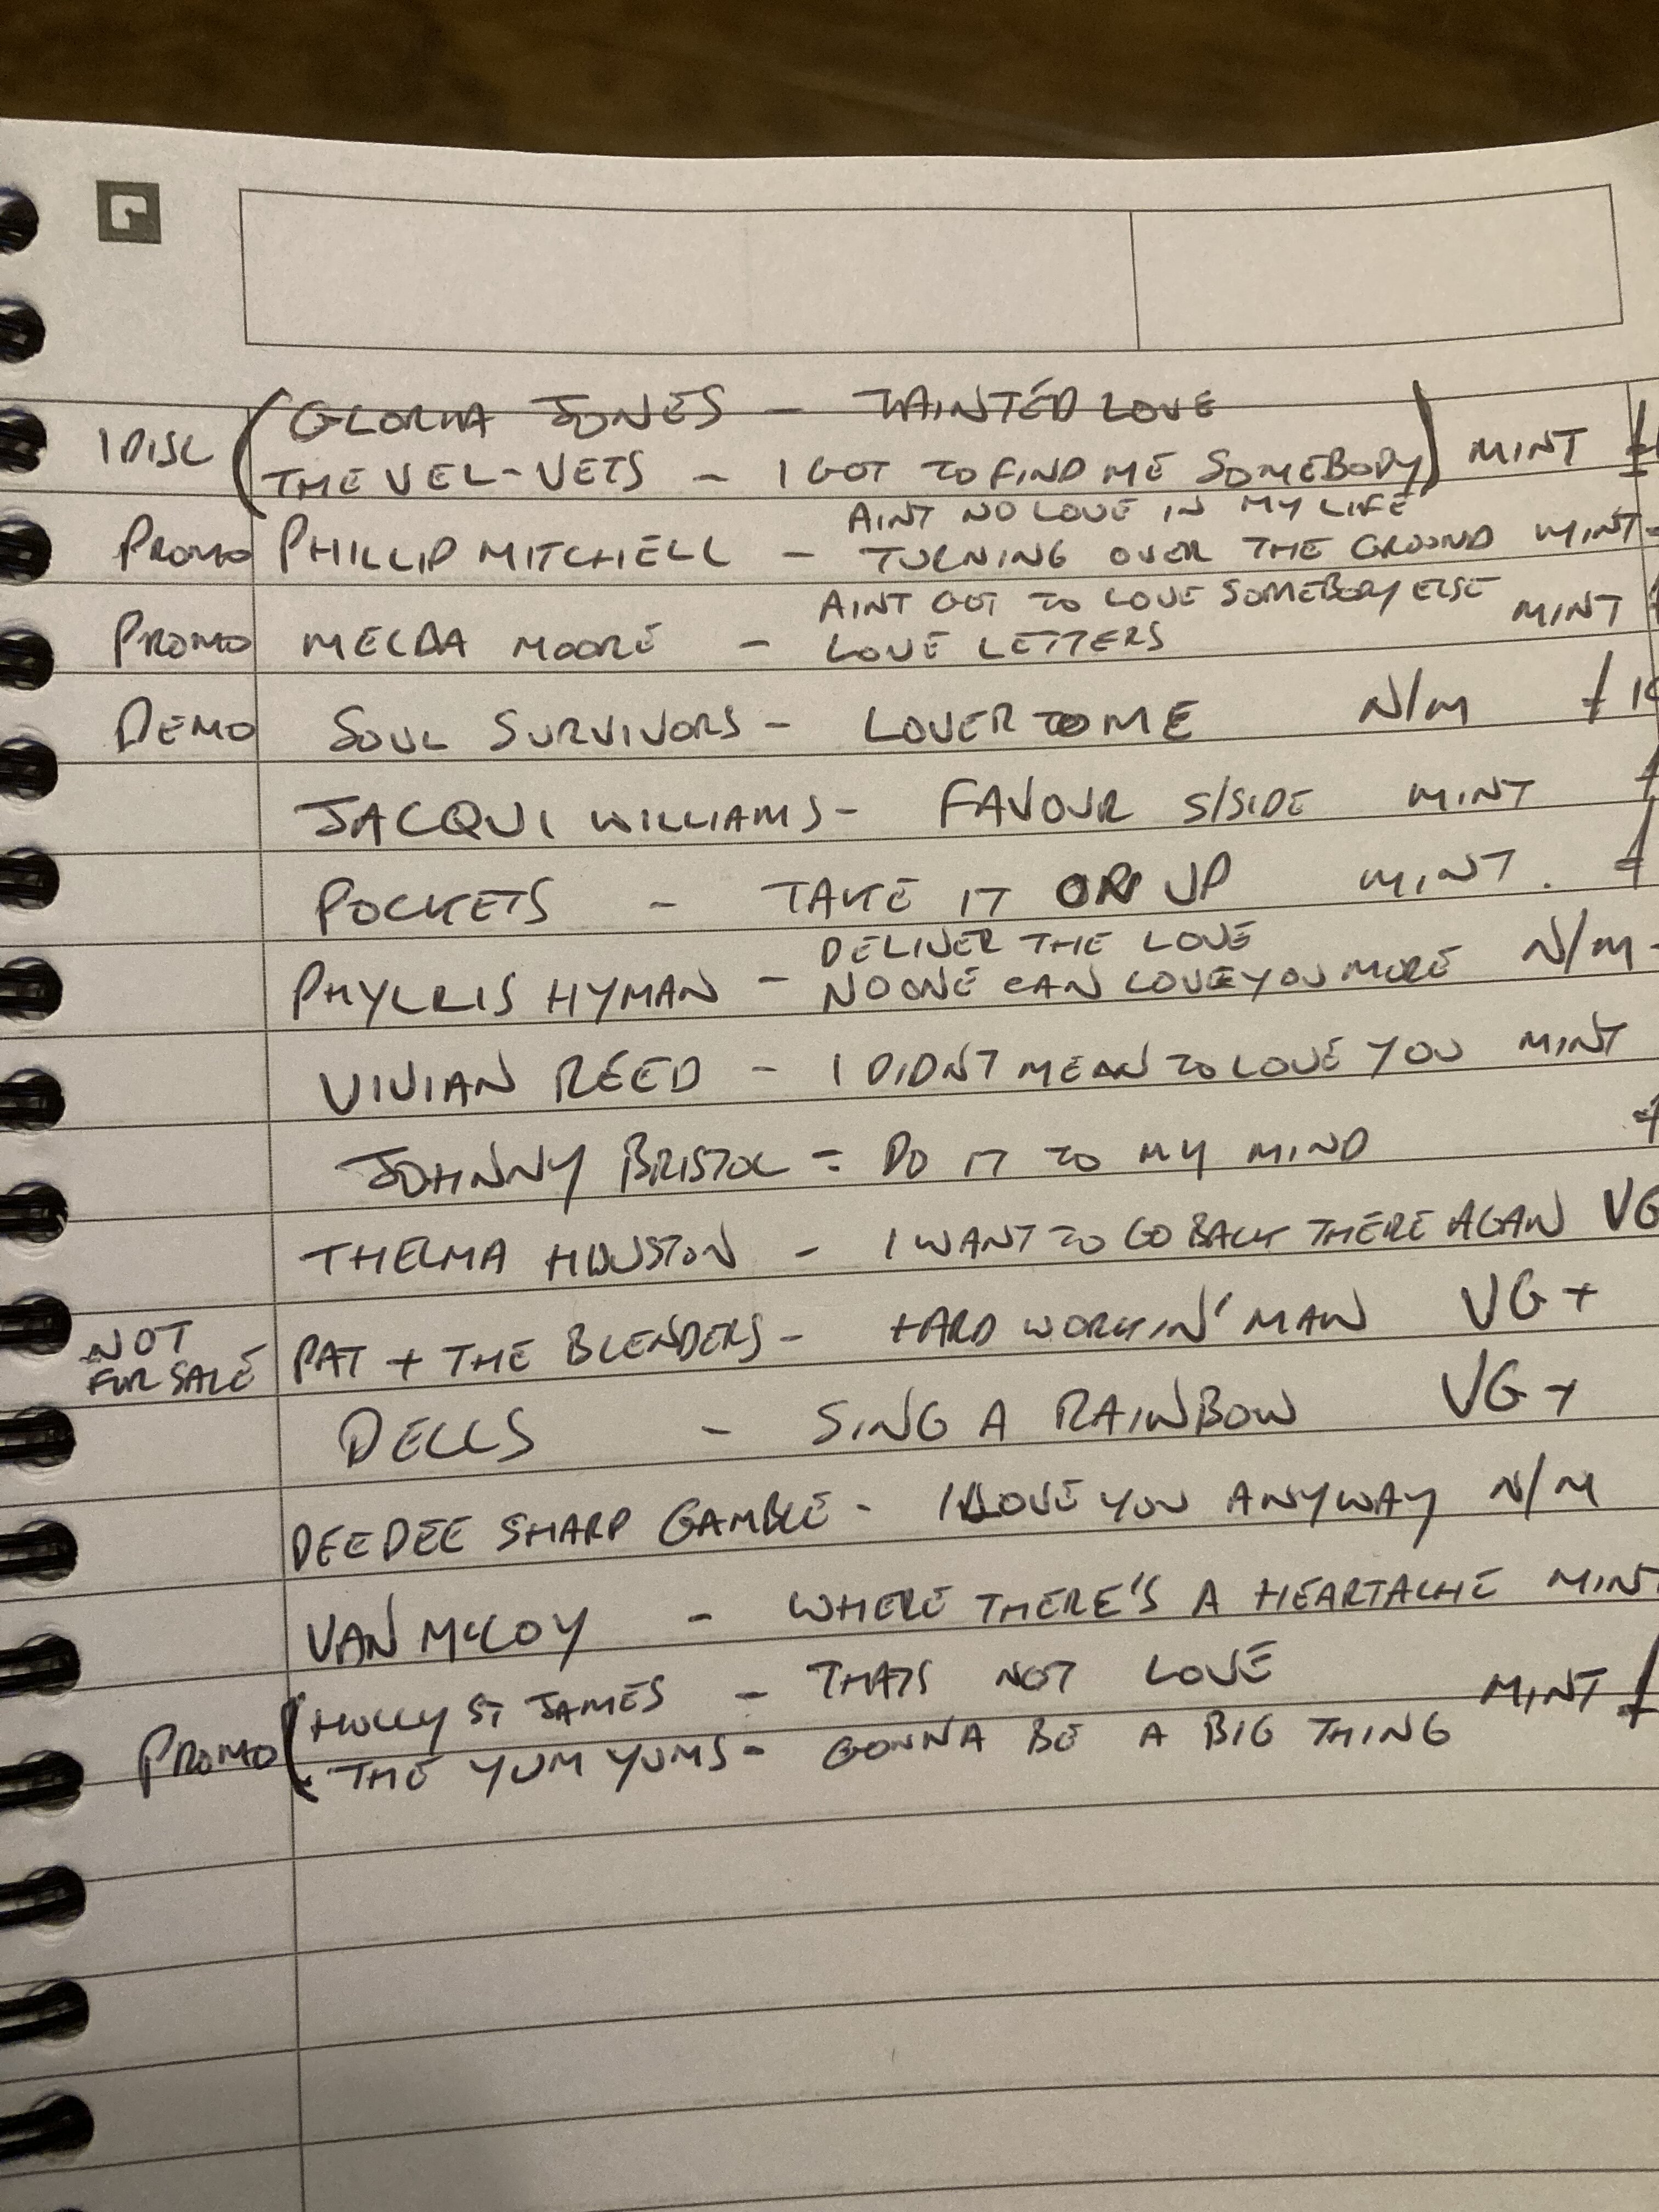 GLORIA JONES - TAINTED LOVE
1 DISC ( THE VEL-VETS - I GOT TO FIND ME SOMEBODY ) MINT £
AINT NO LOVE IN MY LIFE
PROMO PHILLIP MITCHELL - TURNING OVER THE GROUND MINT
AINT GOT TO LOVE SOMEBODY ELSE
PROMO MELBA MOORE - LOVE LETTERS MINT £
DEMO SOUL SURVIVORS - LOVER TO ME N/M £
JACQUI WILLIAMS - FAVOUR S/SIDE MINT £
POCKETS - TAKE IT ON UP MINT. £
DELIVER THE LOVE
PHYLLIS HYMAN - NO ONE CAN LOVE YOU MORE N/M
VIVIAN REED - I DIDNT MEAN TO LOVE YOU MINT
JOHNNY BRISTOL = DO IT TO MY MIND £
THELMA HOUSTON - I WANT TO GO BACK THERE AGAIN VG
NOT FOR SALE PAT + THE BLENDERS - HARD WORKIN' MAN VG+
DELLS - SING A RAINBOW VG+
DEE DEE SHARP GAMBLE - I LOVE YOU ANYWAY N/M
VAN McCOY - WHERE THERE'S A HEARTACHE MINT
HOLLY ST JAMES - THATS NOT LOVE MINT £
PROMO ( THE YUM YUMS - GONNA BE A BIG THING